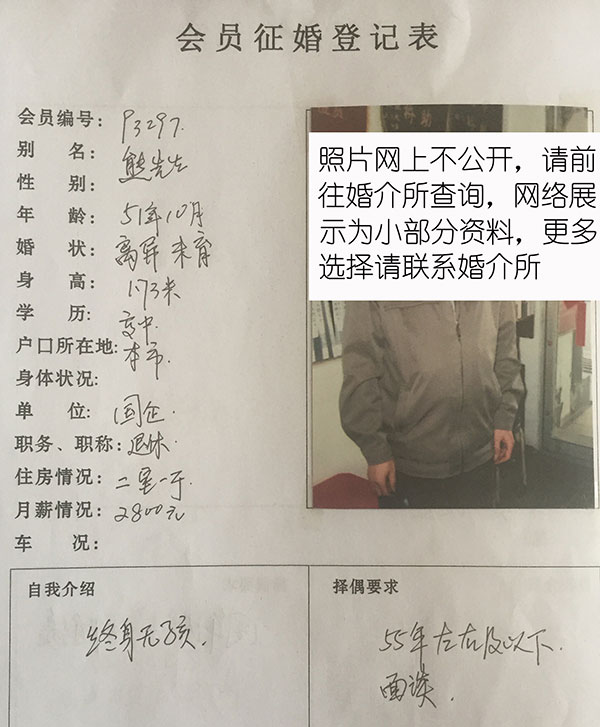 会员征婚登记表
会员编号: P3297
别 名: 熊先生
性 别:
年 龄: 51年10月
婚 状: 离异 未育
身 高: 173米
学 历: 高中
户口所在地: 本市.
身体状况:
单 位: 国企.
职务、职称: 退休
住房情况: 二室一厅
月薪情况: 2800元
车 况:
照片网上不公开，请前
往婚介所查询，网络展
示为小部分资料，更多
选择请联系婚介所
自我介绍
终身无孩.
择偶要求
55年左右及以下.
面谈.